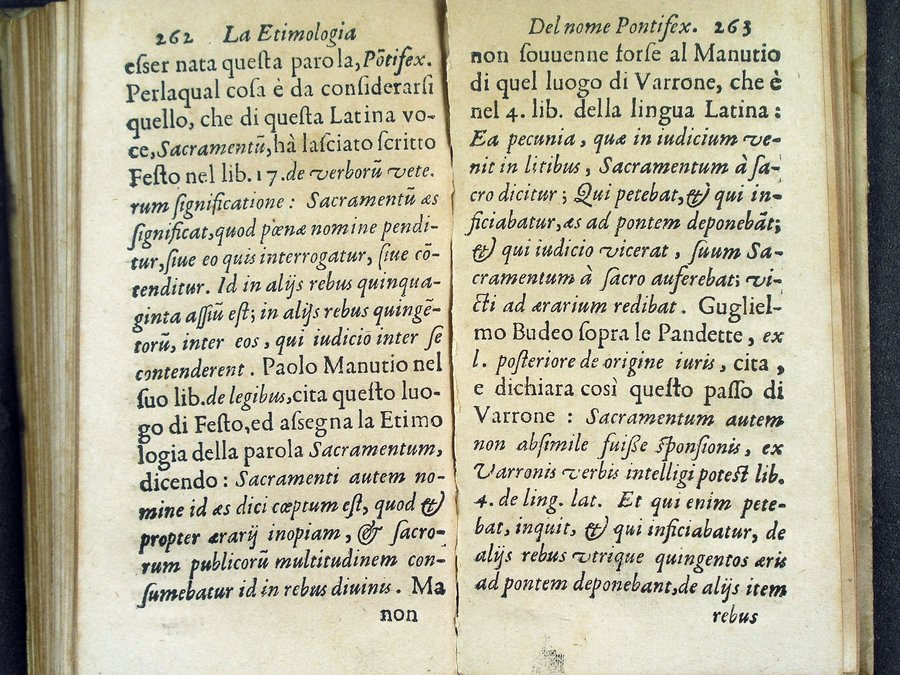 262 La Etimologia
esser nata questa parola, Põtifex.
Perlaqual cosa è da considerarsi
quello, che di questa Latina vo-
ce, Sacramentũ, hà lasciato scritto
Festo nel lib. 17. de verborũ vete.
rum significatione : Sacramentũ æs
significat, quod pœnæ nomine pendi-
tur, siue eo quis interrogatur, siue cõ-
tenditur. Id in alijs rebus quinqua-
ginta assiũ est; in alijs rebus quingẽ-
torũ, inter eos, qui iudicio inter se
contenderent. Paolo Manutio nel
suo lib. de legibus, cita questo luo-
go di Festo, ed assegna la Etimo
logia della parola Sacramentum,
dicendo : Sacramenti autem no-
mine id æs dici cœptum est, quod &
propter ærarij inopiam, & sacro-
rum publicorũ multitudinem con-
sumebatur id in rebus diuinis. Ma
non
Del nome Pontifex. 263
non souuenne forse al Manutio
di quel luogo di Varrone, che è
nel 4. lib. della lingua Latina :
Ea pecunia, quæ in iudicium ve-
nit in litibus, Sacramentum à sa-
cro dicitur ; Qui petebat, & qui in-
ficiabatur, æs ad pontem deponebãt;
& qui iudicio vicerat, suum Sa-
cramentum à sacro auferebat; vi-
cti ad ærarium redibat. Gugliel-
mo Budeo sopra le Pandette, ex
l. posteriore de origine iuris, cita,
e dichiara così questo passo di
Varrone : Sacramentum autem
non absimile fuisse sponsionis, ex
Varronis verbis intelligi potest lib.
4. de ling. lat. Et qui enim pete-
bat, inquit, & qui inficiabatur, de
alijs rebus vtrique quingentos æris
ad pontem deponebant, de alijs item
rebus